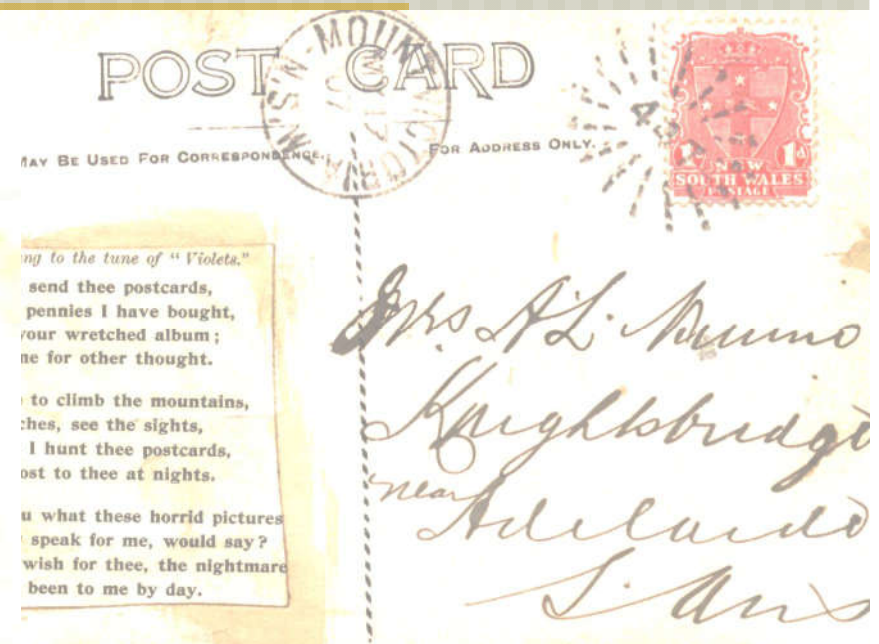 POST CARD
MOUNT VICTORIA N.S.W.
MAY BE USED FOR CORRESPONDENCE.
FOR ADDRESS ONLY.
1d 1d
NEW
SOUTH WALES
POSTAGE
ng to the tune of "Violets."
send thee postcards,
pennies I have bought,
your wretched album;
ne for other thought.
to climb the mountains,
ches, see the sights,
I hunt thee postcards,
ost to thee at nights.
u what these horrid pictures
speak for me, would say?
wish for thee, the nightmare
been to me by day.
Mrs A L Munno
Knightsbridge
near
Adelaide
S. Aus